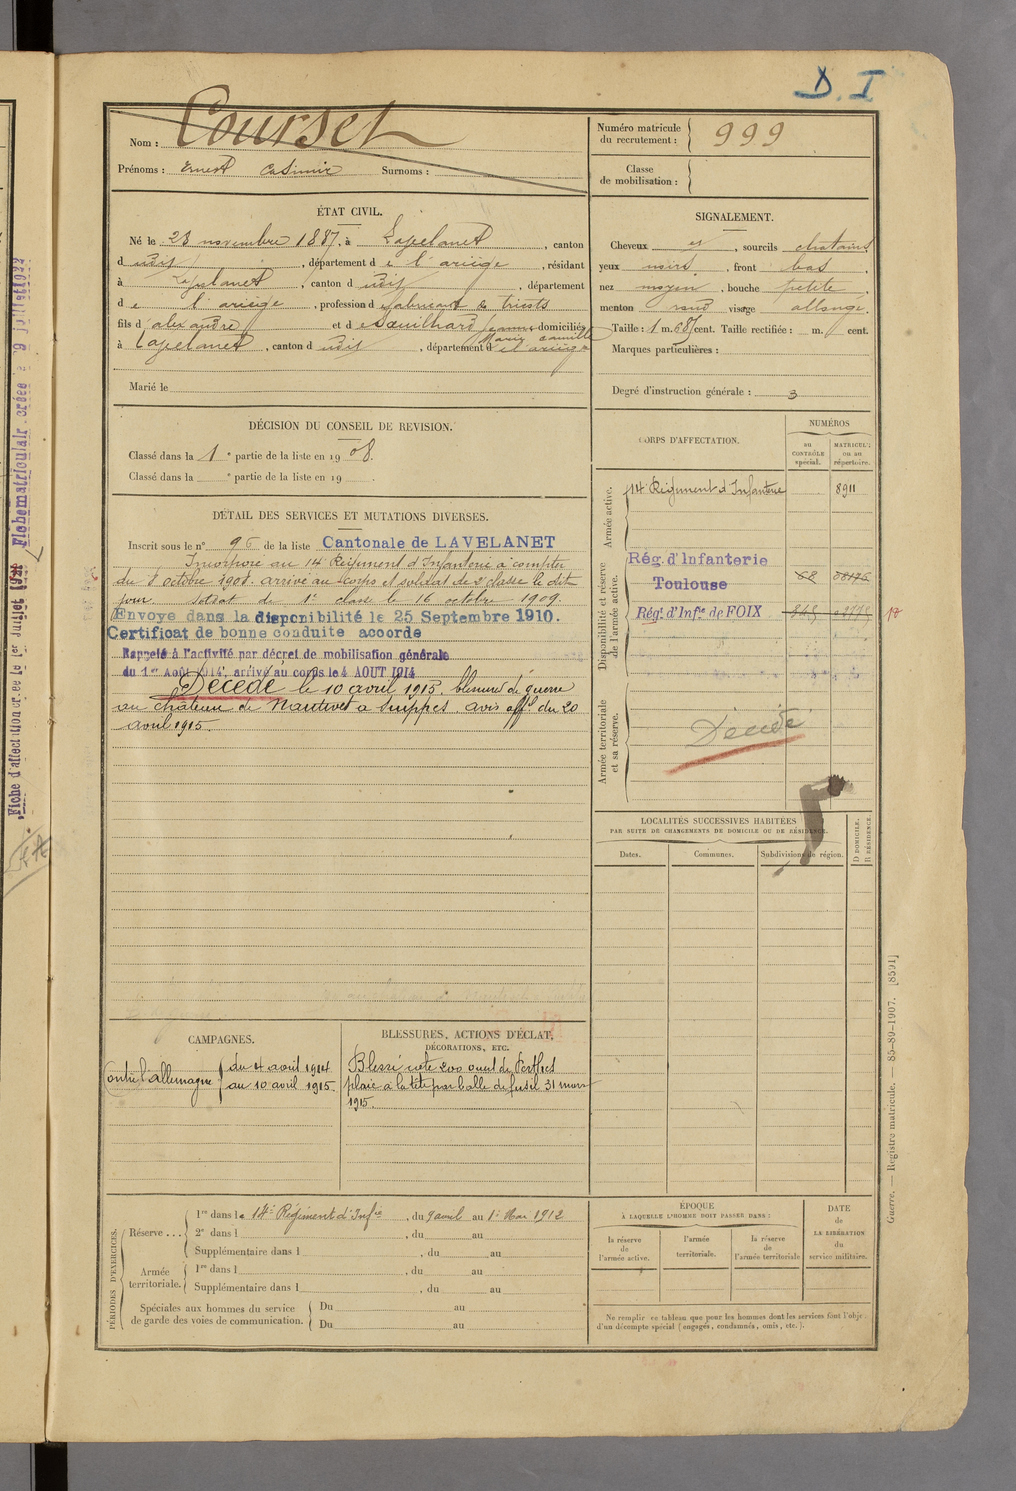 D. I
Nom : Courset
Prénoms : Ernest Casimir Surnoms :
Numéro matricule
du recrutement : 999
Classe
de mobilisation :
ÉTAT CIVIL.
Né le 23 novembre 1887, à Lavelanet, canton
d udit, département de l'ariège, résidant
à Lavelanet, canton d udit, département
de l'ariège, profession de fabricant de tricots
fils d'alexandre et de Saeuilhard domiciliés
Marie
à Lavelanet, canton d udit, département de l'ariège
Marié le
SIGNALEMENT.
Cheveux et, sourcils chatains
yeux noirs, front bas,
nez moyen, bouche petite,
menton rond visage allongé.
Taille : 1 m. 68 cent. Taille rectifiée : m. cent.
Marques particulières :
Degré d'instruction générale : 3
DÉCISION DU CONSEIL DE REVISION.
Classé dans la 1e partie de la liste en 1908.
Classé dans la e partie de la liste en 19
DÉTAIL DES SERVICES ET MUTATIONS DIVERSES.
Inscrit sous le n° 96 de la liste Cantonale de LAVELANET
Incorporé au 14e Régiment d'Infanterie à compter
du 8 octobre 1908. arrivé au corps et soldat de 2e classe le dit
jour. Soldat de 1e classe le 16 octobre 1909.
Envoye dans la disponibilité le 25 Septembre 1910.
Certificat de bonne conduite accorde
Rappelé à l'activité par décret de mobilisation générale
du 1er Août 1914. arrivé au corps le 4 AOUT 1914
Décédé le 10 avril 1915. blessure de guerre
au château de Nantivet à Suippes. avis offel du 20
avril 1915.
CORPS D'AFFECTATION.
NUMÉROS
au
CONTRÔLE
spécial.
MATRICULE
ou au
répertoire.
Armée active.
14e Régiment d'Infanterie 8911
Disponibilité et réserve
de l'armée active.
Rég. d'Infanterie
Toulouse
Rég. d'Infie de FOIX
Armée territoriale
et sa réserve.
Décédé
LOCALITÉS SUCCESSIVES HABITÉES
PAR SUITE DE CHANGEMENTS DE DOMICILE OU DE RÉSIDENCE.
Dates. Communes. Subdivisions de région.
D DOMICILE.
R RÉSIDENCE.
CAMPAGNES.
Contre l'allemagne
du 4 août 1914
au 10 avril 1915.
BLESSURES, ACTIONS D'ÉCLAT,
DÉCORATIONS, ETC.
Blessé cote 200 ouest de Perthes
plaie à la tête par balle de fusil 31 mars
1915.
PÉRIODES D'EXERCICES.
Réserve ...
1re dans le 14e Régiment d'Infie, du 9 avril au 1e Mai 1912
2e dans l , du au
Supplémentaire dans l , du au
Armée
territoriale.
1re dans l , du au
Supplémentaire dans l , du au
Spéciales aux hommes du service
de garde des voies de communication.
Du au
Du au
ÉPOQUE
À LAQUELLE L'HOMME DOIT PASSER DANS :
la réserve
de
l'armée active.
l'armée
territoriale.
la réserve
de
l'armée territoriale
DATE
de
LA LIBÉRATION
du
service militaire.
Ne remplir ce tableau que pour les hommes dont les services font l'objet
d'un décompte spécial (engagés, condamnés, omis, etc.).
Guerre. — Registre matricule. — 85-89-1907. [8591]